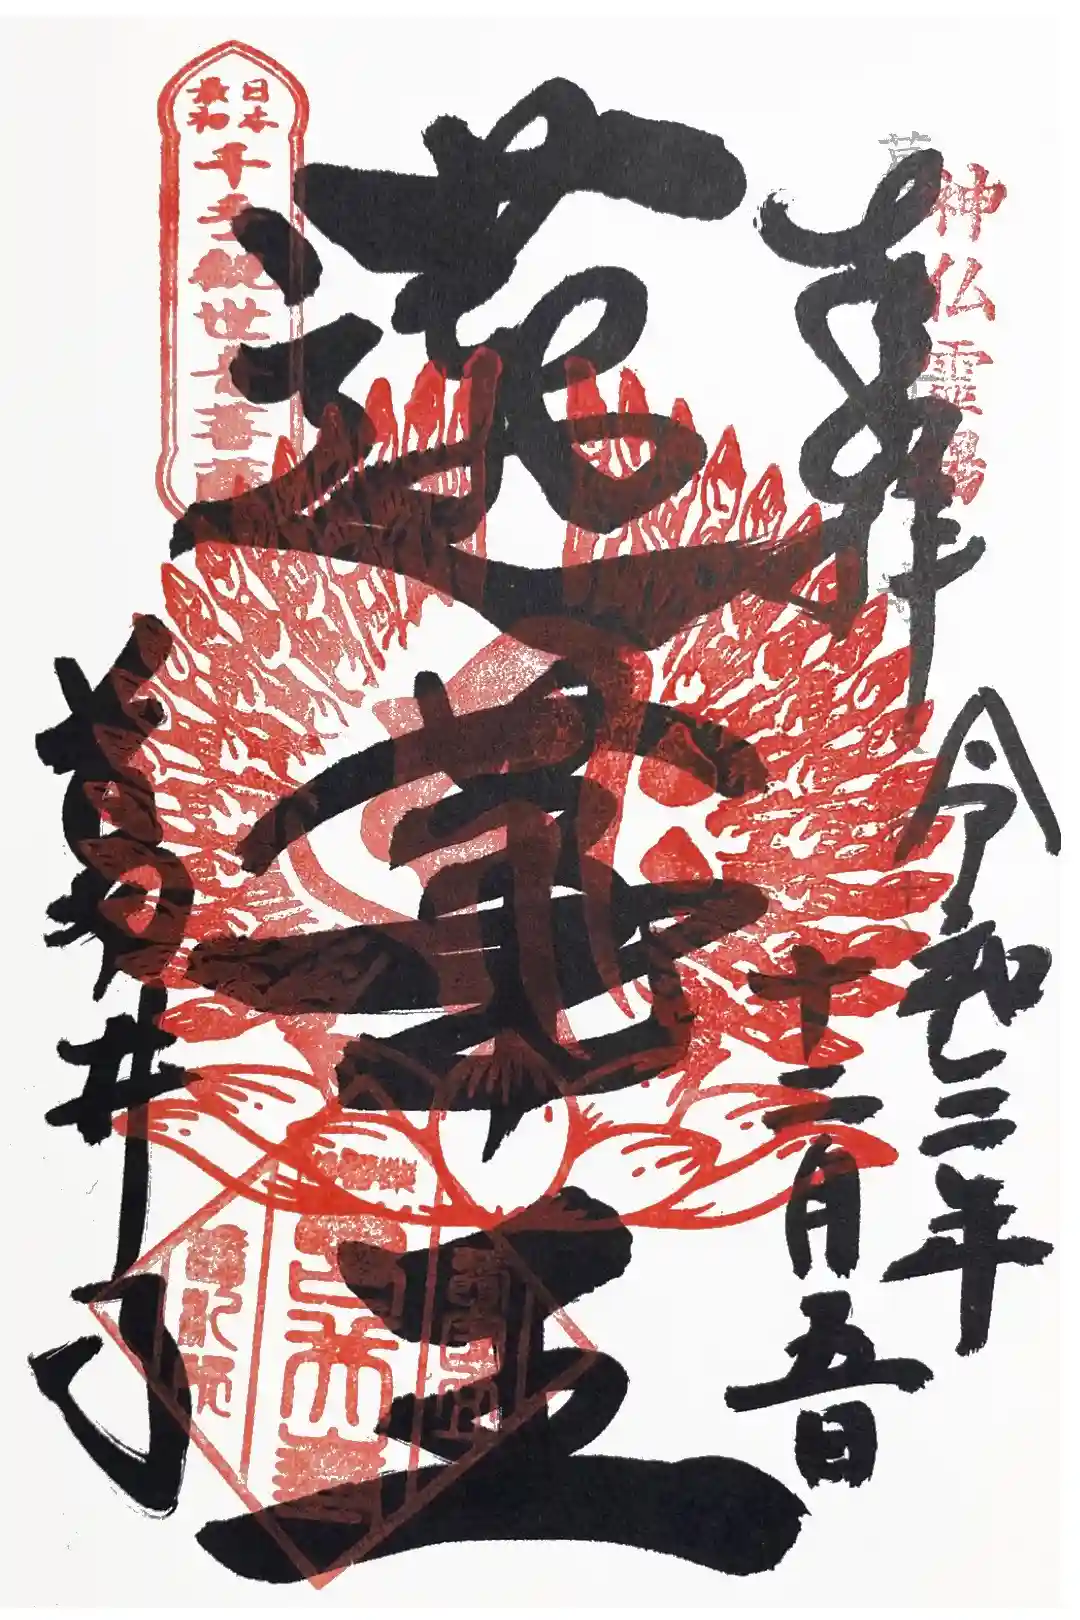 神仏靈場
奉拝
令和二年
十二月五日
蓮華王
日本
最初
千手観世音菩薩
葛井寺